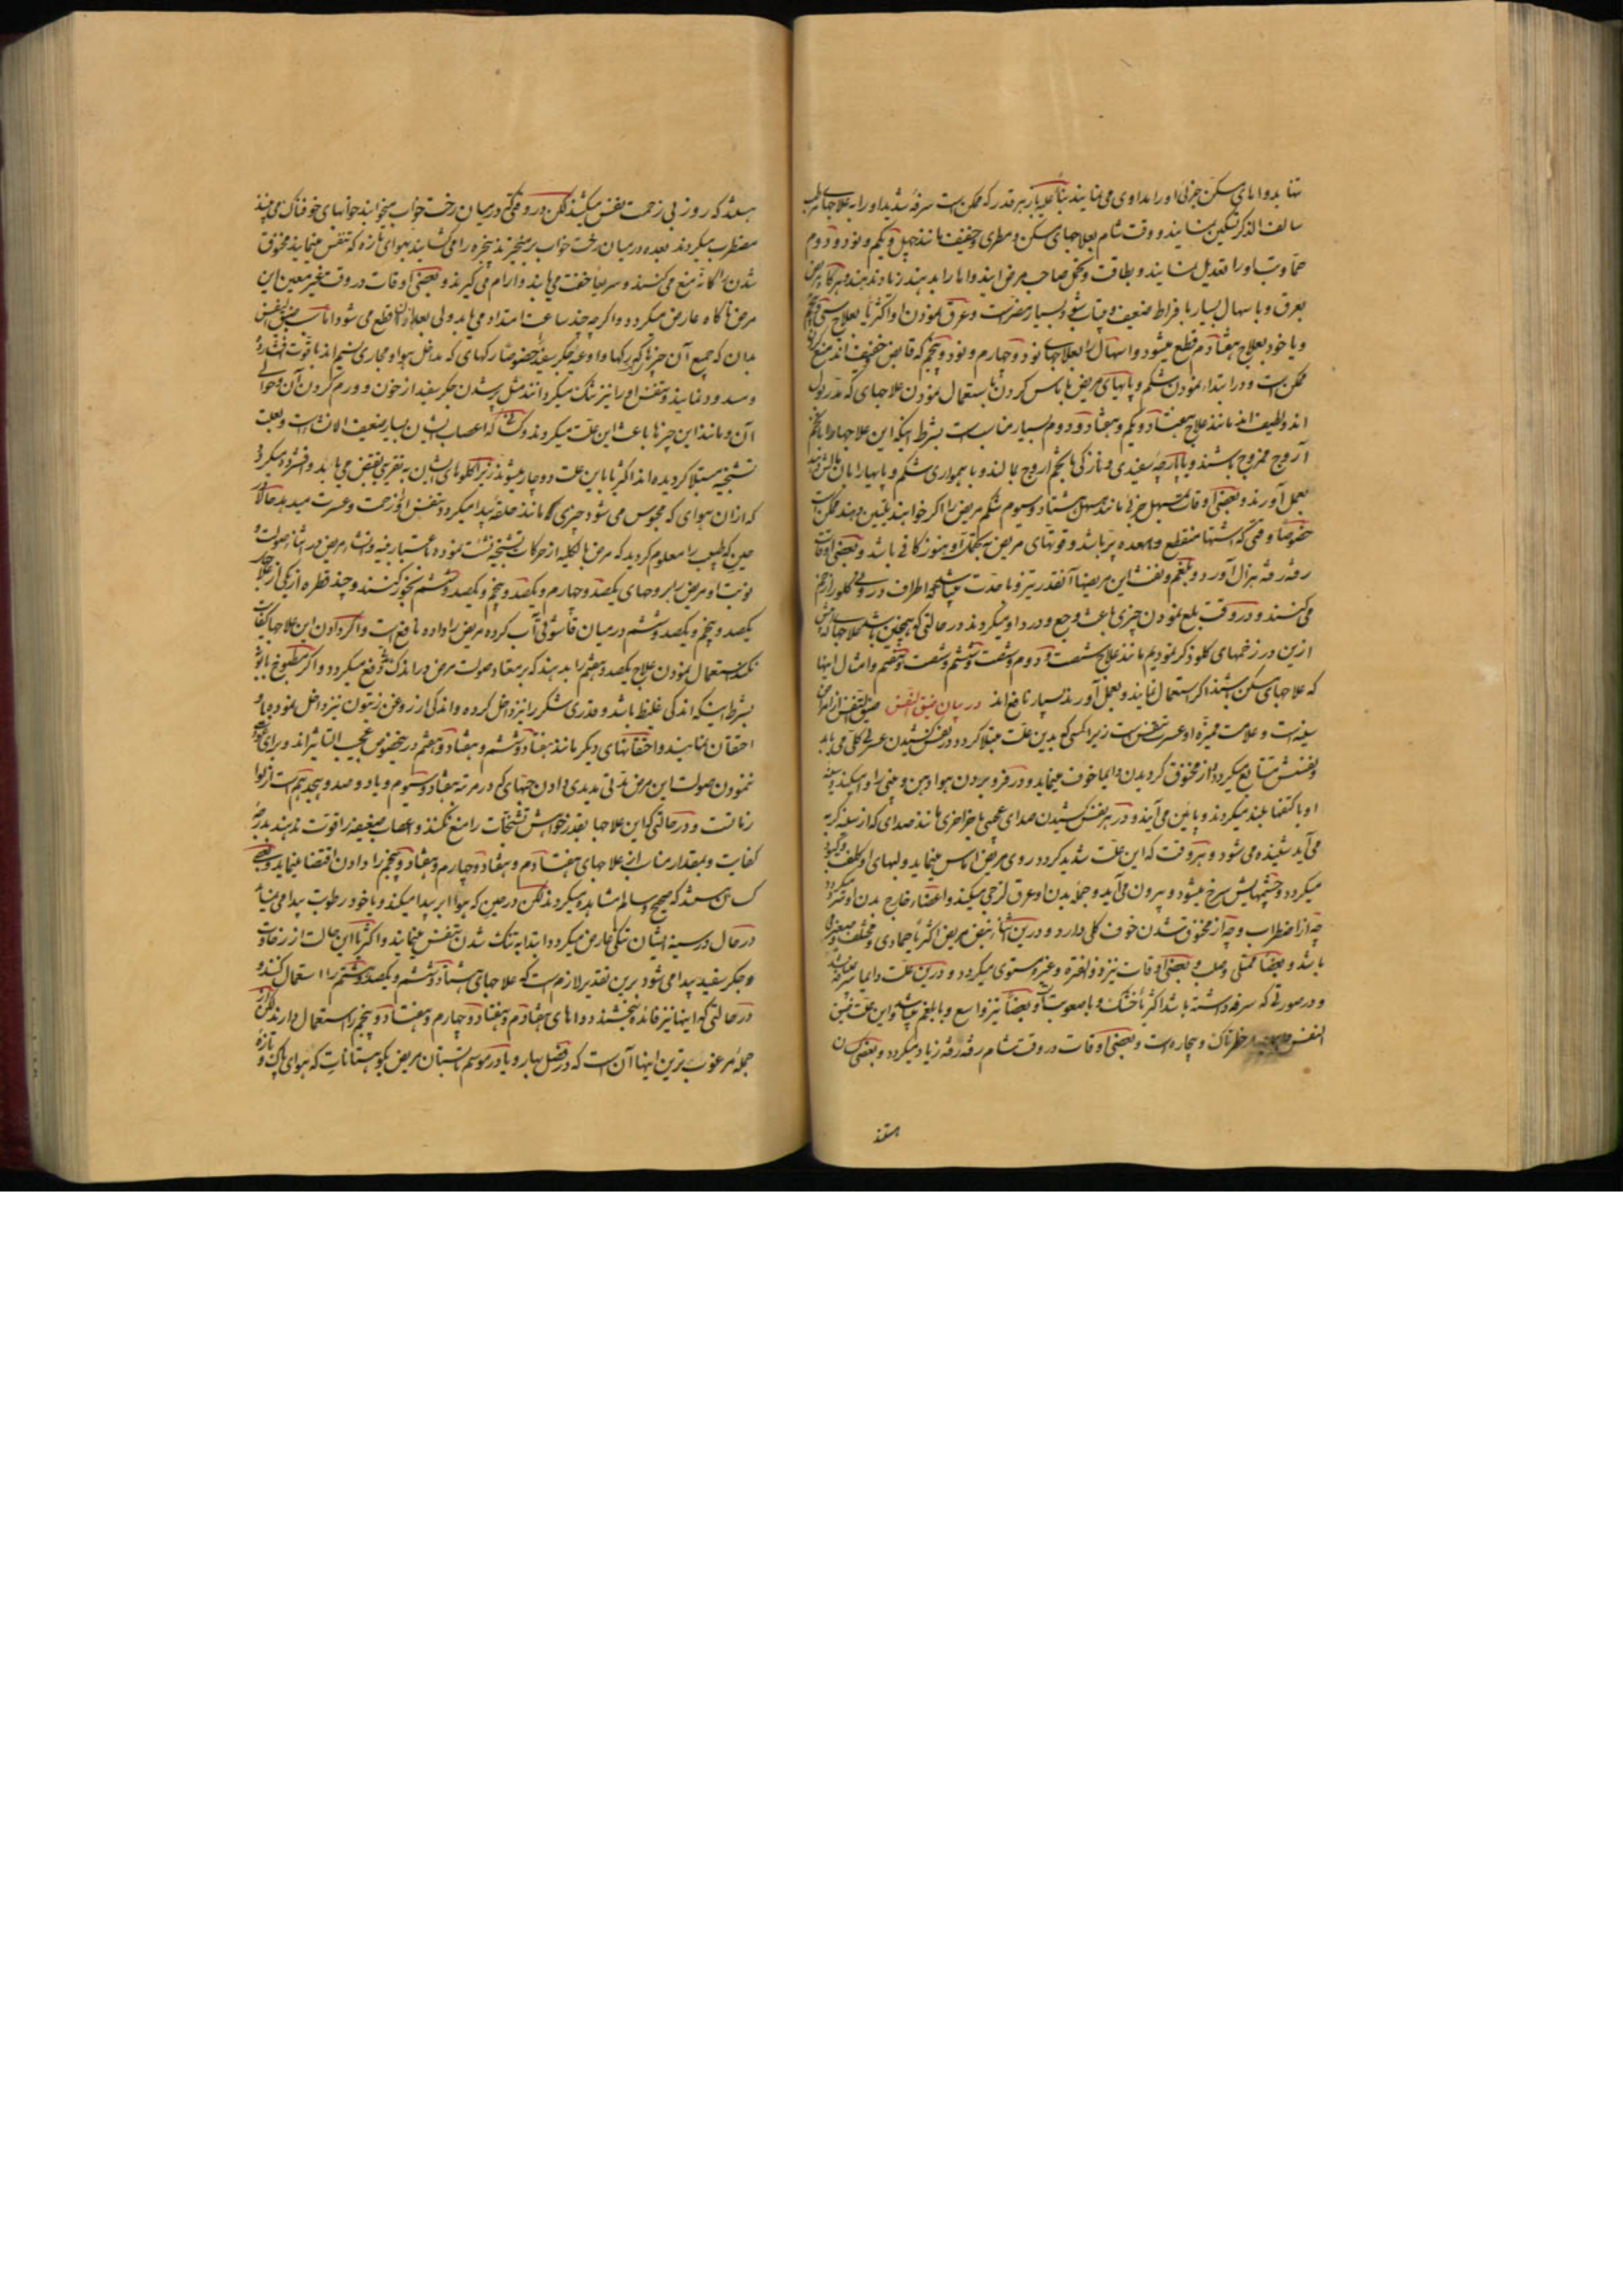 تنها بدواهای مسکن جزئی او را مداوی می نمایند بناءً علیه باز هر قدر که ممکن است سرفه شدید او را به علاجهای
سالف الذکر تسکین نمایند و وقت شام بعلاجهای مسکن و مطری و خفیف مانند چهل و یکم و نود و دوم
او را تعدیل نمایند و بطاقت و تحمل صاحب مرض
بعرق و با سهال بسیار با فراط ضعیف و بسیار مضر است و عرق نمودن او اکثریا بعلاج
و یا خود بعلاج هفتاد م قطع میشود و اسهال را بعلاجهای نود و چهارم و نود و پنجم که قابض خفیف اند منع
ممکن است و در ابتداء نمودن شکم و پایهای مریض باماس کردن باستعمال نمودن علاجهای که مدر بول
اند و لطیف اند مانند علاج هفتاد و یکم و هفتاد و دوم بسیار مناسب است بشرط اینکه این علاجها را با تخم
آروج ممزوج باشند و با پارچه سفیدی و نازکی با تخم آروج بمالند و با همواری شکم و پایها را
بعمل آورند و بعضی اوقات مسهل جزئی مانند مسهل هشتاد و سیوم شکم مریض را اگر خواهند تلیین دهند ممکن است
خصوصاً وقتی که اشتها منقطع و معده پر باشد و قوتهای مریض هنوز کافی باشد و بعضی اوقات
رفته رفته بهزال آورد و بلغم و نفث این مریضها آنقدر تیز و با حدت میباشد که اطراف درونی گلو را زخم
می کنند و در وقت بلع نمودن چیزی باعث وجع و درد او میگردند در حالتی که همچنین باشد علاجها که پیش
ازین در زخمهای گلو ذکر نمودیم مانند علاج شصت و دوم و شصت و ششم و شصت و هفتم و امثال اینها
که علاجهای مسکن باشند اگر استعمال نمایند و بعمل آورند بسیار نافع اند در بیان ضیق النفس ضیق النفس از امراض
سینه است و علامت ممیزه او عسرت تنفس است زیرا کسی که بدین علت مبتلا گردد در نفس کشیدن عسرتی کلی می یابد
و نفسش متتابع میگردد و از مخنوق گردیدن دایما خوف مینماید و در فرو بردن هوا دهن و بینی را وا میکند و سینه
او با کتفها بلند میگردند و پائین می آیند و در هر نفس کشیدن صدای عجیبی با خراخری مانند صدای که از سینه گربه
می آید شنیده می شود و هر وقت که این علت شدید گردد روی مریض اماس مینماید و لبهای او کلفت و کبود
میگردد و چشمهایش سرخ میشود و بیرون می آید و جمله بدن او عرق لزجی میکند و اعضاء خارج بدن او سرد میگردد
چه از اضطراب و چه از مخنوق شدن خوف کلی دارد و درین اثنا نبض مریض اکثریا جمادی و مختلف و صغیر می
باشد و بعضا ممتلی و صلب و بعضی اوقات نیز ذو الفتره و غیر مستوی میگردد و درین علت دایما سرفه
و در صورتی که سرفه داشته باشد اکثریا خشک و با صعوبت و بعضا نیز واسع و با بلغم میباشد و این علت ضیق
النفس خطرناک و بیچاره است و بعضی اوقات در وقت شام رفته رفته زیاد میگردد و بعضی کسان
هستند
هستند که روز بی زحمت نفس میکشند لکن در وقتی که در میان رخت خواب میخوابند خوابهای خوفناک می بینند
مضطرب میگردند بعده در میان رخت خواب برمیخیزند پنجره را می گشایند بهوای تازه که تنفس مینمایند مخنوق
شدن را کانه منع می کنند و سریعا خفت می یابند و آرام می گیرند و بعضی اوقات در وقت غیر معین این
مرض ناگاه عارض میگردد و اگر چه چند ساعت امتداد می یابد ولی بعد از آن قطع می شود اما سبب ضیق النفس
بدان که جمیع آن چیزها که رگها و اوعیه جگر سفید خصوصا رگهای که مدخل هوا و مجاری نسیم اند با قوت فشرده
و مسدود نمایند و تنفس او را نیز تنگ میگردانند مثل پر شدن جگر سفید از خون و ورم کردن آن و حوالی
آن و مانند این چیزها باعث این علت میگردند و کسانی که اعصاب ایشان بسیار ضعیف الان است و بعلت
تشنجیه مبتلا گردیده اند اکثریا باین علت دوچار میشوند زیرا گلوهای ایشان به تقریبی تقبض می یابد و افشرده میگردد
که از آن هوای که محبوس می شود چیزی که مانند حلقه پیدا میگردد و تنفس او را زحمت و عسرت میدهد حالا در
حین که طبیب را معلوم گردید که مرض بالکلیه از حرکات تشنجیه نشئت نموده باعتبار رفیه و انشاء مرض در اثناء صولت و
نوبت او مریض را بروحهای یکصد و چهارم و یکصد و پنجم و یکصد و ششم بخور کنند و چند قطره از یکی از علاج
یکصد و پنجم و یکصد و ششم در میان قاشوقی آب کرده مریض را داده نافع است و اگر دادن این علاجها کفایت
نکند استعمال نمودن علاج یکصد و هفتم را بدهند که بر معتاد صولت مرض در اندک وقتی دفع میگردد و اگر مطبوخ بابونه
بشرط اینکه اندکی غلیظ باشد و قدری شکر را نیز داخل کرده و اندکی از روغن زیتون نیز داخل نموده با او
احتقان نمایند و احتقانهای دیگر مانند هفتاد و ششم و هفتاد و هفتم در این خصوص عجیب التأثیر اند و برای دفع
نمودن صولت این مرض مدتی مدیدی دادن حبهای که در مرتبه هفتاد و سیوم و یا دو صد و هیجدهم است
و در حالتی که این علاجها بقدر خواهش تشنجات را منع نکنند و اعصاب ضعیفه را قوت ندهند بدرجه
کفایت و بمقدار مناسب از علاجهای هفتادم و هفتاد و چهارم و هفتاد و پنجم را دادن اقتضا مینماید و بعضی
کسان هستند که صحیح و سالم مشاهده میگردند لکن در حین که هوا ابر پیدا میکند و یا خود رطوبت پیدا می نماید
در حال در سینه ایشان تنگی عارض میگردد و ابتدا به تنگ شدن تنفس مینمایند و اکثریا این حالت از رخاوت
و جگر سفید پیدا می شود برین تقدیر لازم است که علاجهای هشتاد و ششم و یکصد و هشتم را استعمال کنند و
در حالتی که اینها نیز فائده نبخشند دواهای هفتادم و هفتاد و چهارم و هفتاد و پنجم را استعمال دارند لکن
جمله مرغوب ترین اینها آن است که در فصل بهار و یا در موسم تابستان مریض بکوهستانات که هوای پاک و تازه